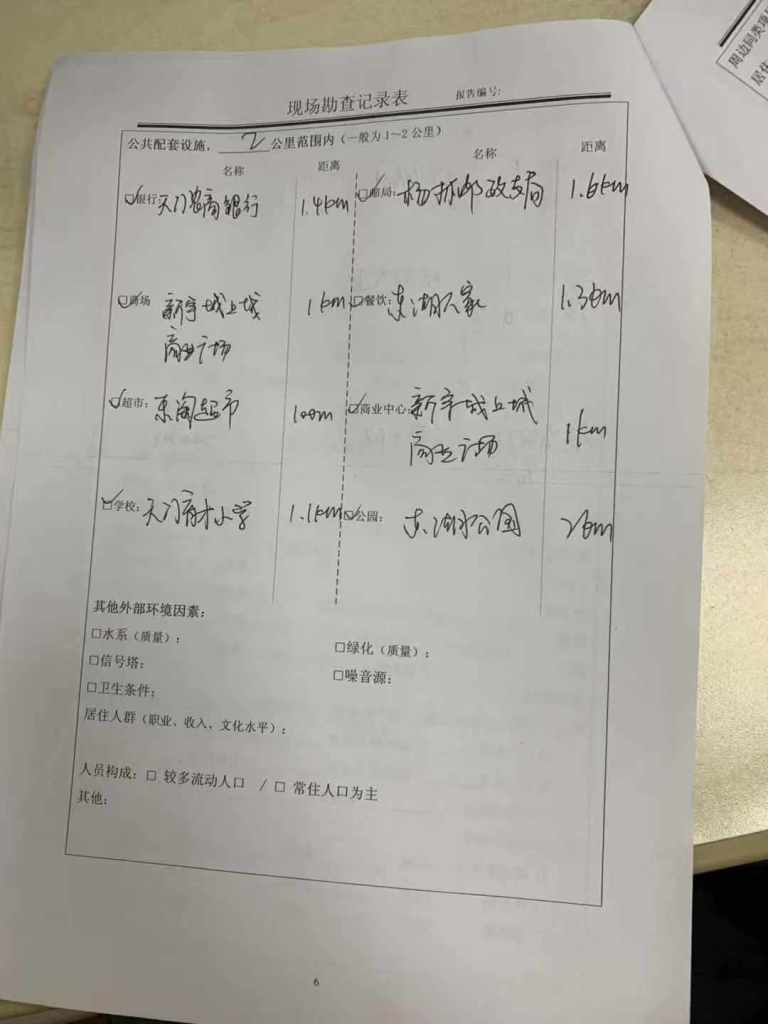 周边同类项
居住
现场勘查记录表 报告编号:
公共配套设施, 2 公里范围内(一般为1~2公里)
名称 距离 名称 距离
☑银行 天门农商银行 1.4km ☑邮局: 杨林邮政支局 1.6km
☑商场 新宇城上城 1km ☑餐饮: 东湖人家 1.3km
商业广场
☑超市: 东阁超市 100m ☑商业中心: 新宇城上城 1km
商业广场
☑学校: 天门育才小学 1.1km ☑公园: 东湖公园
其他外部环境因素:
□水系(质量): □绿化(质量):
□信号塔: □噪音源:
□卫生条件:
居住人群(职业、收入、文化水平):
人员构成: □ 较多流动人口 / □ 常住人口为主
其他:
6